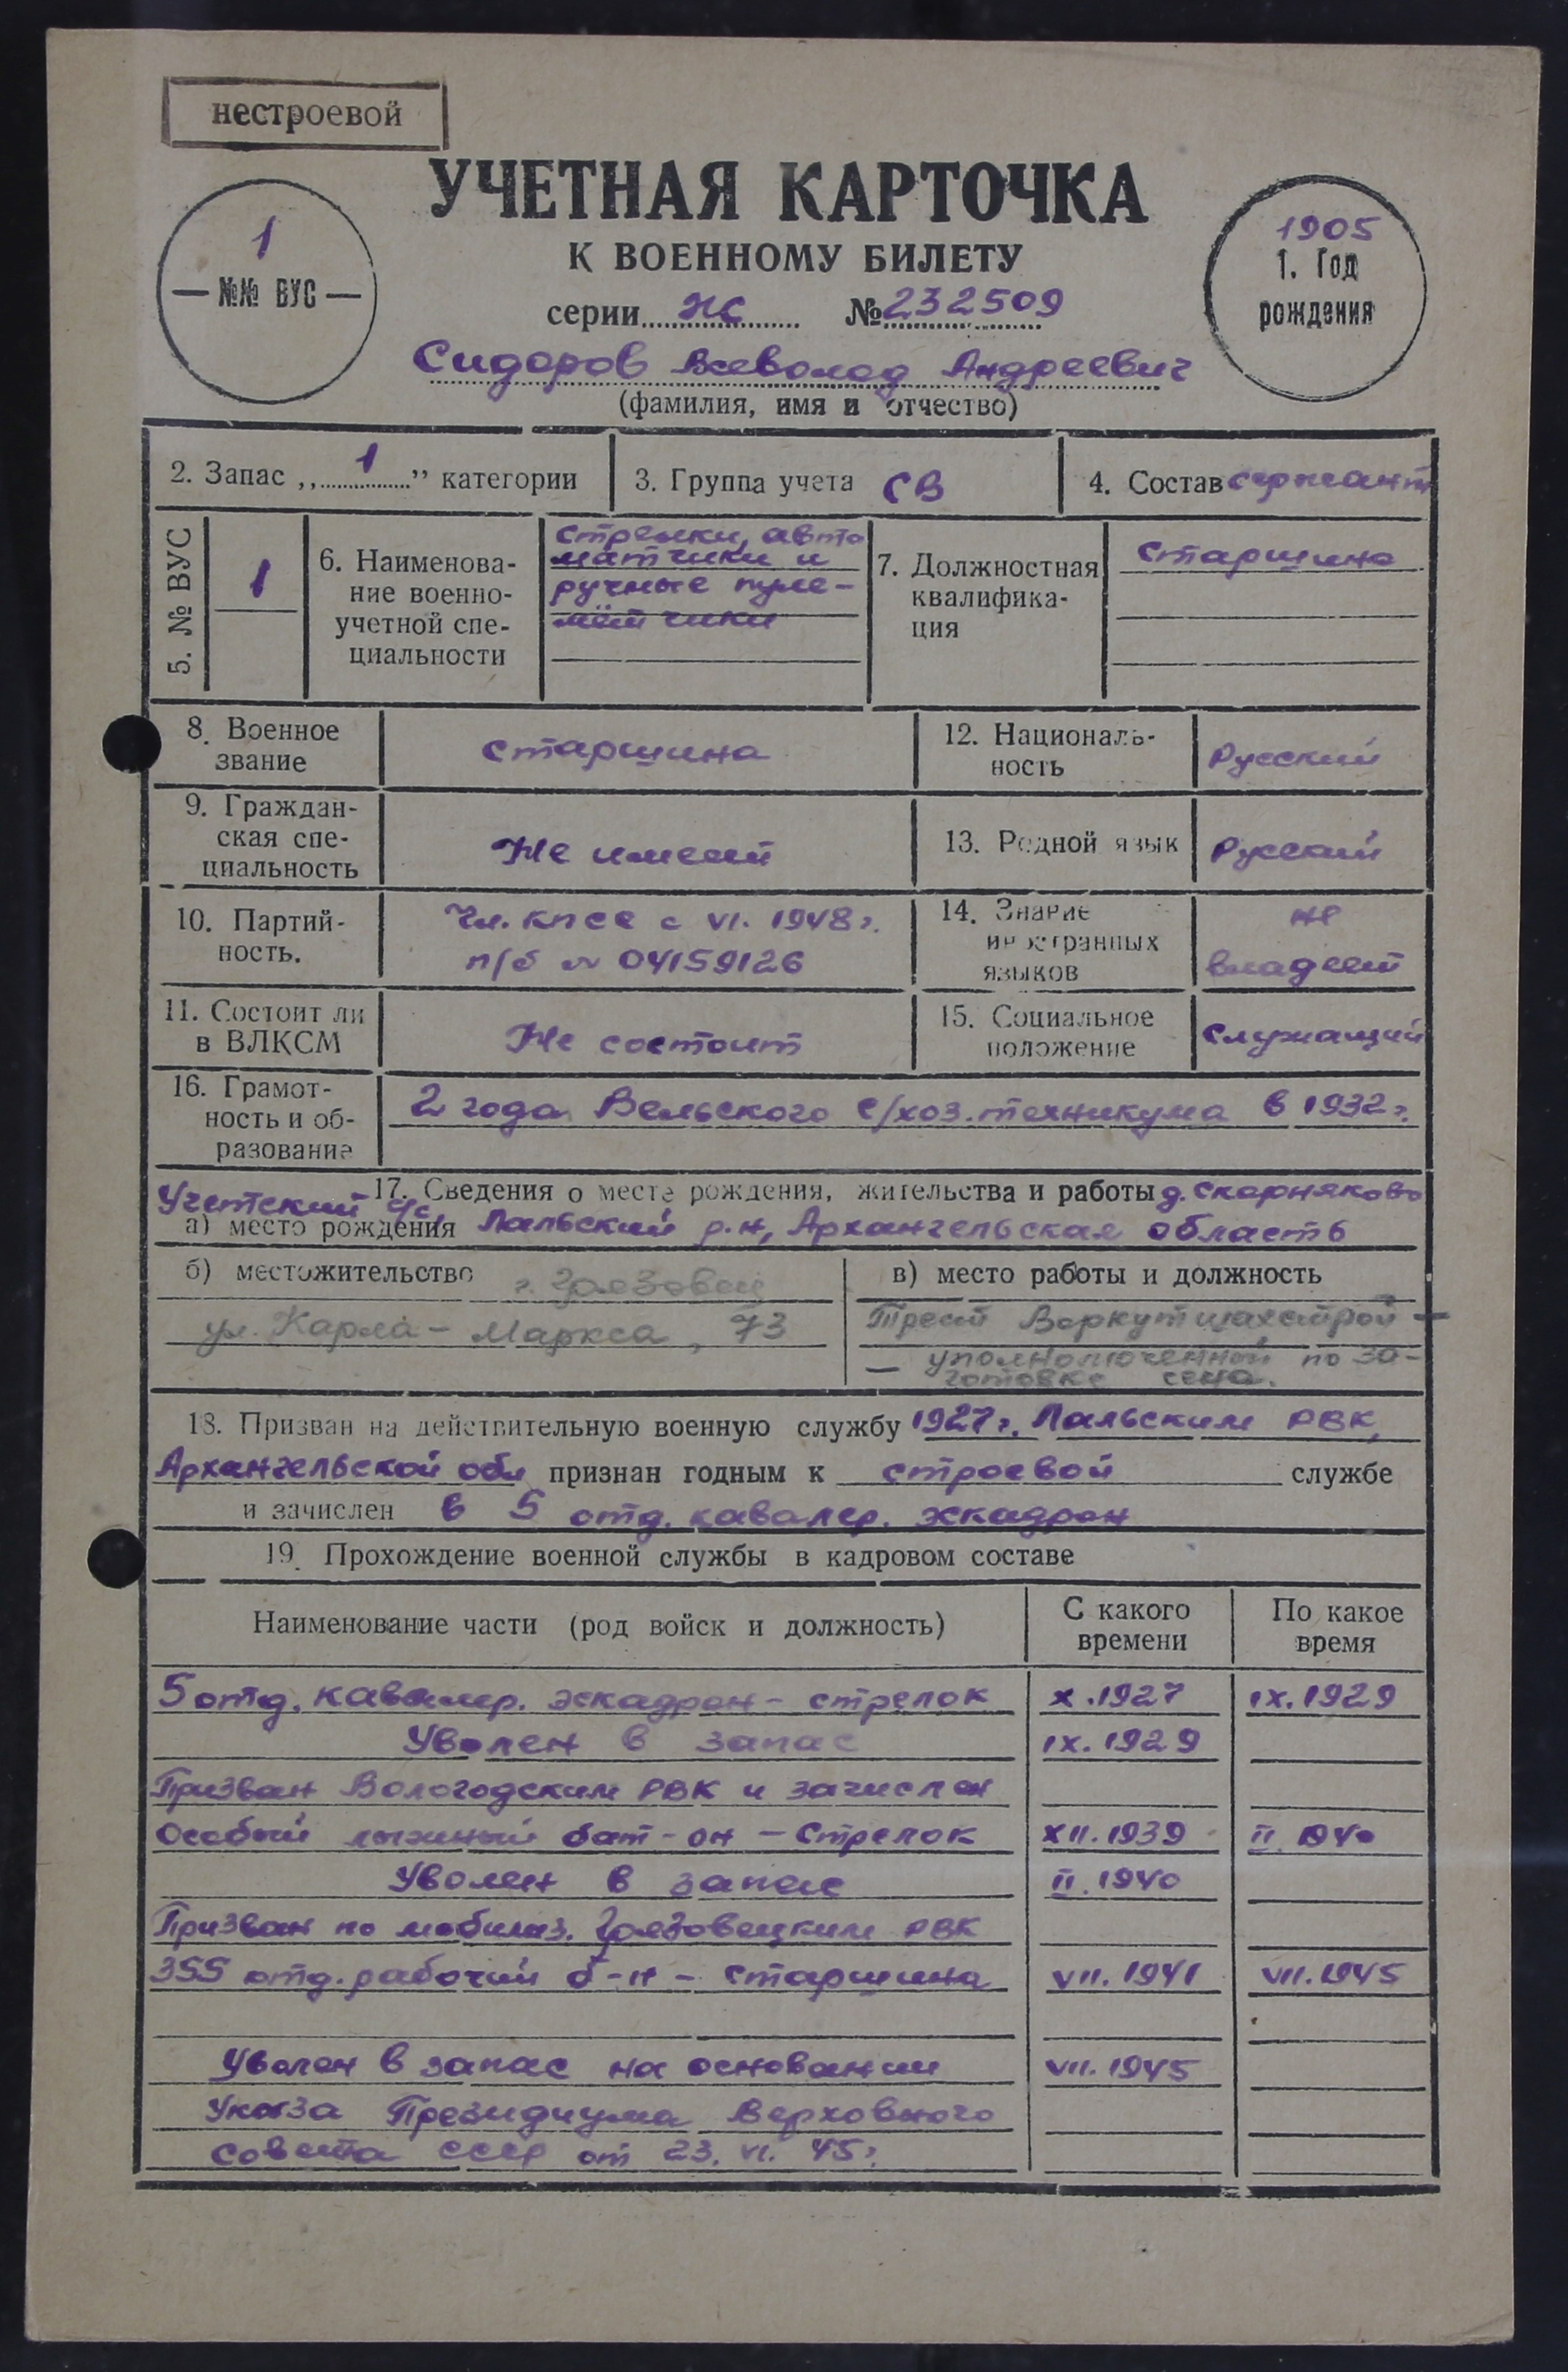 нестроевой
УЧЕТНАЯ КАРТОЧКА
К ВОЕННОМУ БИЛЕТУ
1
— №№ ВУС —
1905
1. Год
рождения
серии НС №232509
Сидоров Всеволод Андреевич
(фамилия, имя и отчество)
2. Запас „1” категории
3. Группа учета СВ
4. Состав сержант
5. № ВУС
1
6. Наименова-
ние военно-
учетной спе-
циальности
стрелки, авто
матчики и
ручные пуле-
мётчики
7. Должностная
квалифика-
ция
старшина
8. Военное
звание
старшина
12. Националь-
ность
Русский
9. Граждан-
ская спе-
циальность
Не имеет
13. Родной язык
Русский
10. Партий-
ность.
Чл. КПСС с VI. 1948 г.
п/б № 04159126
14. Знание
иностранных
языков
не
владеет
11. Состоит ли
в ВЛКСМ
Не состоит
15. Социальное
положение
служащий
16. Грамот-
ность и об-
разование
2 года Вельского с/хоз. техникума в 1932 г.
17. Сведения о месте рождения, жительства и работы д. Скорняково
Учетский с/с,
а) место рождения Лальский р.н, Архангельская область
б) местожительство г. Грязовец
ул. Карла - Маркса, 73
в) место работы и должность
Трест Воркутшахстрой —
— уполномоченный по за-
готовке сена.
18. Призван на действительную военную службу 1927 г. Лальским РВК,
Архангельской обл признан годным к строевой службе
и зачислен в 5 отд. кавалер. эскадрон
19. Прохождение военной службы в кадровом составе
Наименование части (род войск и должность)
С какого
времени
По какое
время
5 отд. кавалер. эскадрон - стрелок X.1927 IX.1929
Уволен в запас IX.1929
Призван Вологодским РВК и зачислен
Особый лыжный бат-он - Стрелок XII.1939 II.1940
Уволен в запас II.1940
Призван по мобилиз. Грязовецким РВК
355 отд. рабочий б-н - старшина VII.1941 VII.1945
Уволен в запас на основании VII.1945
Указа Президиума Верховного
Совета СССР от 23. VI. 45 г.